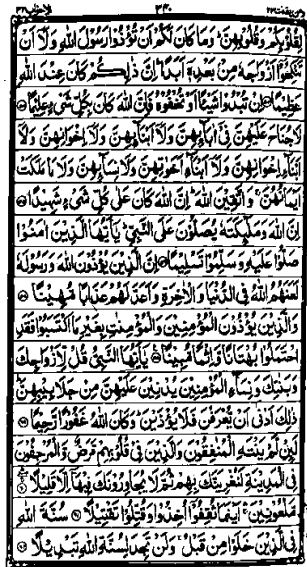 قلوبكم وقلوبهن وما كان لكم ان تؤذوا رسول الله ولا ان
تنكحوا ازواجه من بعده ابدا ان ذلكم كان عند الله
عظيما ان تبدوا شيئا او تخفوه فان الله كان بكل شيء عليما
جناح عليهن في ابائهن ولا ابنائهن ولا اخوانهن ولا
ابناء اخوانهن ولا ابناء اخوتهن ولا نسائهن ولا ما ملكت
ايمانهن واتقين الله ان الله كان على كل شيء شهيدا
ان الله وملئكته يصلون على النبي يايها الذين امنوا
صلوا عليه وسلموا تسليما ان الذين يؤذون الله ورسوله
لعنهم الله في الدنيا والاخرة واعد لهم عذابا مهينا
والذين يؤذون المؤمنين والمؤمنت بغير ما اكتسبوا فقد
احتملوا بهتانا واثما مبينا يايها النبي قل لازواجك
وبنتك ونساء المؤمنين يدنين عليهن من جلابيبهن
ذلك ادنى ان يعرفن فلا يؤذين وكان الله غفورا رحيما
لئن لم ينته المنفقون والذين في قلوبهم مرض والمرجفون
في المدينة لنغرينك بهم ثم لا يجاورونك فيها الا قليلا
ملعونين اينما ثقفوا اخذوا وقتلوا تقتيلا سنة الله
في الذين خلوا من قبل ولن تجد لسنة الله تبديلا